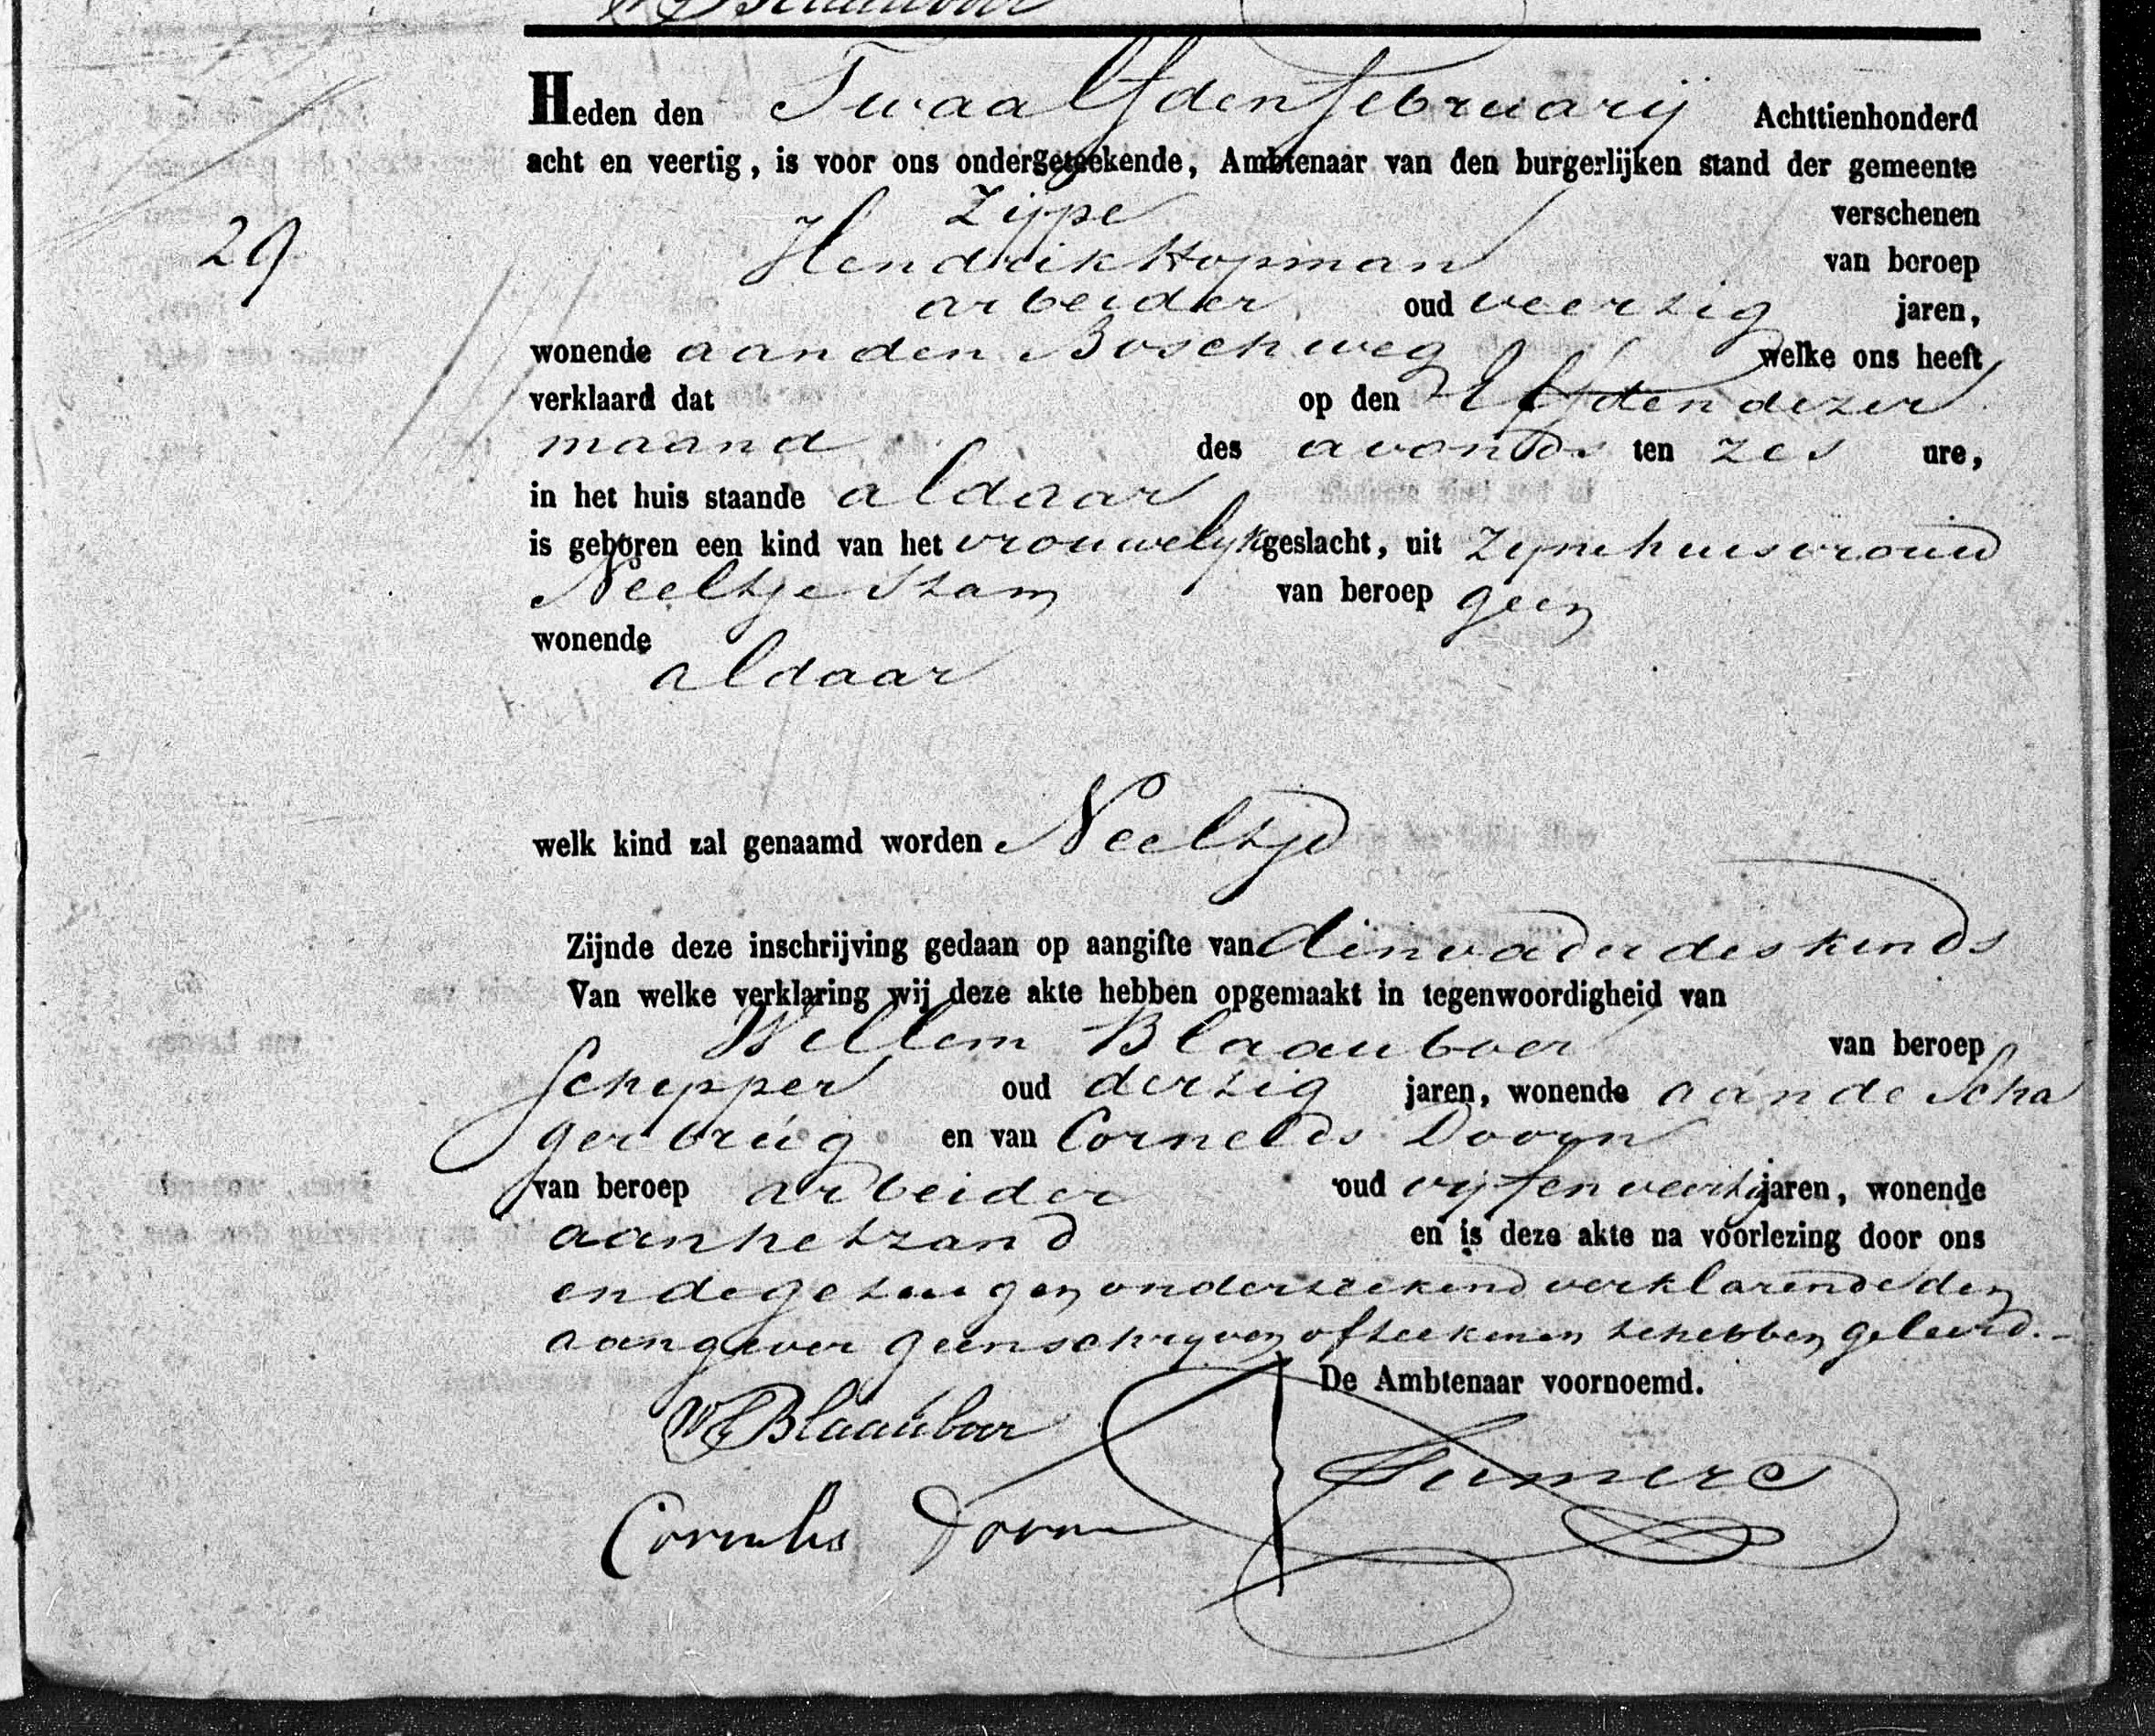 Heden den Twaalfden februarij Achttienhonderd
acht en veertig, is voor ons ondergeteekende, Ambtenaar van den burgerlijken stand der gemeente
Zijpe verschenen
29 Hendrik Hopman van beroep
arbeider oud veertig jaren,
wonende aan den Boschweg welke ons heeft
verklaard dat op den Elfden dezer
maand des avonds ten zes ure,
in het huis staande aldaar
is geboren een kind van het vrouwelijk geslacht, uit zijne huisvrouw
Neeltje Stam van beroep geen
wonende
aldaar
welk kind zal genaamd worden Neeltje
Zijnde deze inschrijving gedaan op aangifte van den vader des kinds
Van welke verklaring wij deze akte hebben opgemaakt in tegenwoordigheid van
Willem Blaauboer van beroep
Schipper oud dertig jaren, wonende aan de Scha
gerbrug en van Cornelis Doorn
van beroep arbeider oud vijf en veertig jaren, wonende
aan het zand en is deze akte na voorlezing door ons
en de getuigen onderteekend verklarende den
aangever geen schrijven of teekenen te hebben geleerd.
De Ambtenaar voornoemd.
W Blaauboer
Cornelis Doorn